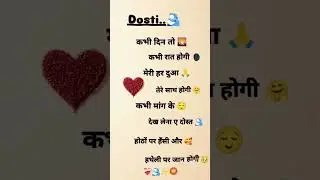 Dosti..🫂
कभी दिन तो 🌄
कभी रात होगी 🌘
मेरी हर दुआ 🙏
तेरे साथ होगी 🤗
कभी मांग के 😌
देख लेना ए दोस्त 🫂
होठों पर हँसी और 🥰
हथेली पर जान होगी 🥹